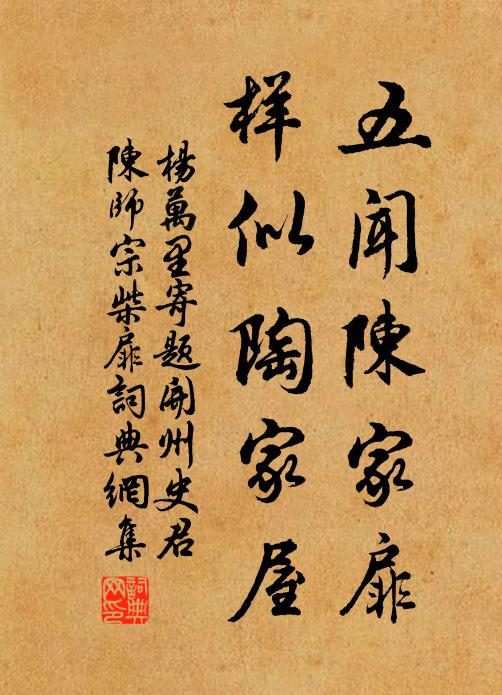 五闻陳家扉
样似陶家屋
楊萬里寄題開州史君
陳師宗柴扉詞典網集
詞典
网印